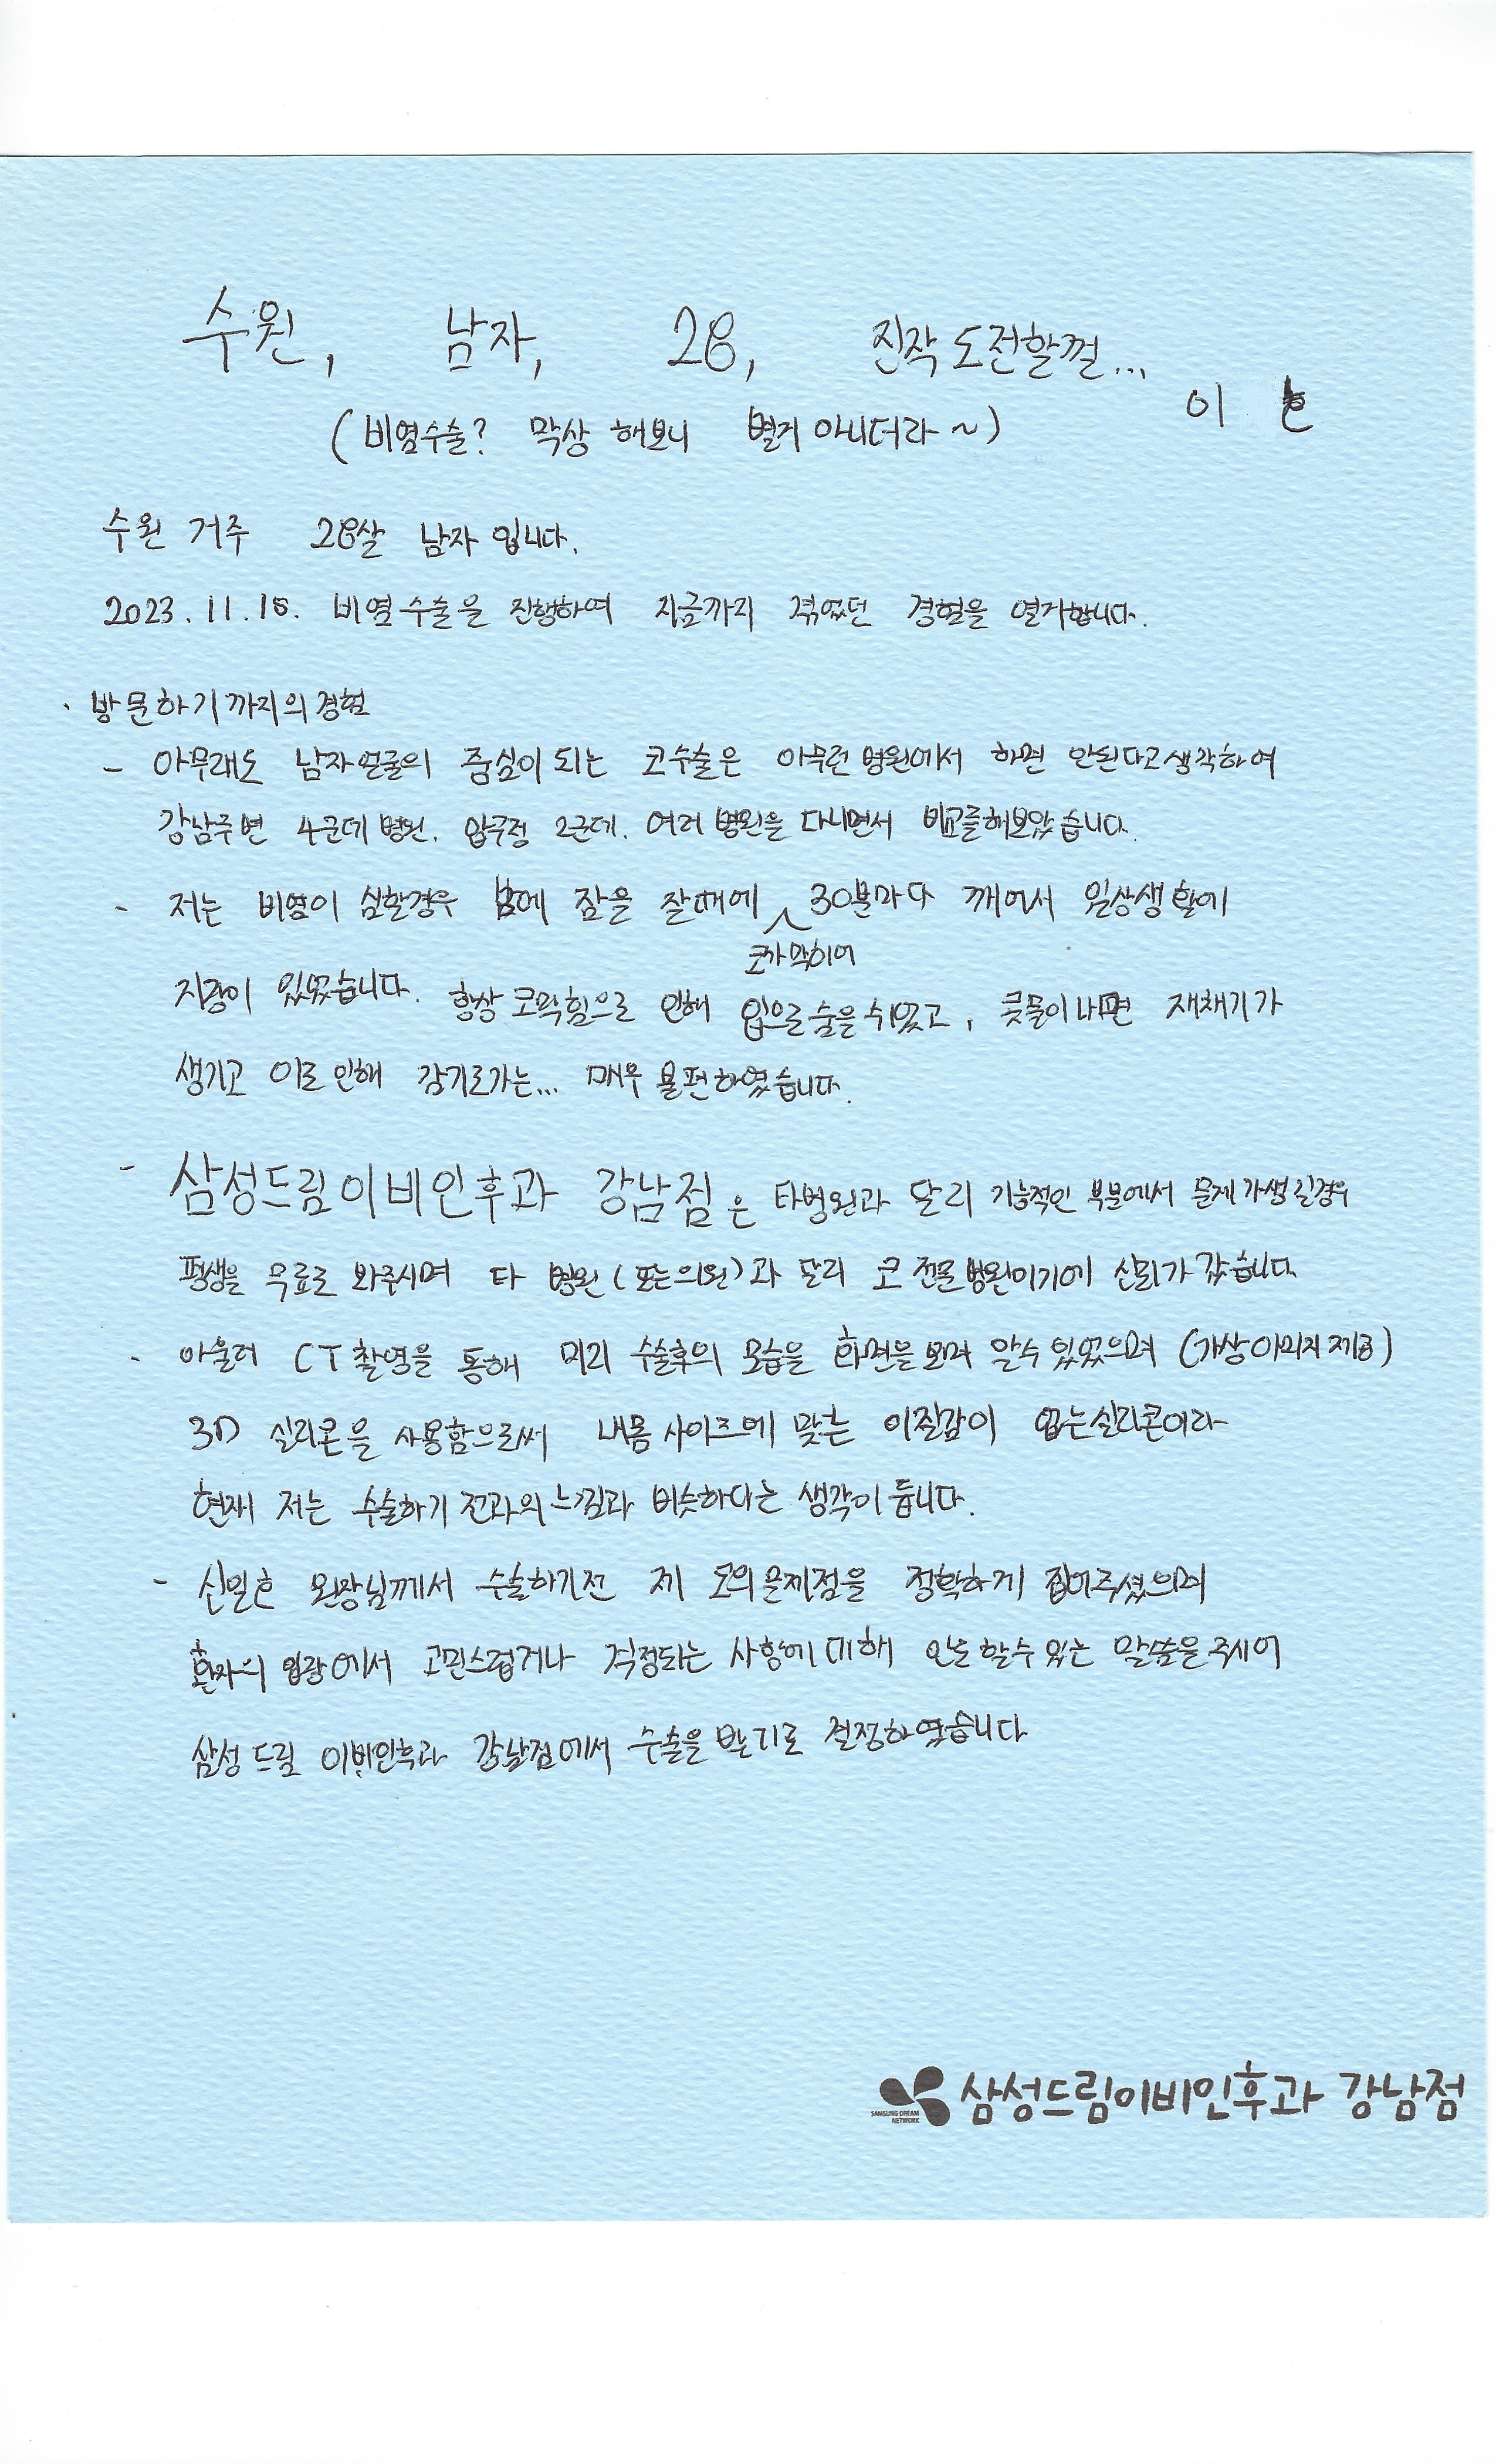 수원, 남자, 28, 진작 도전할껄...
이
(비염수술? 막상 해보니 별거 아니더라~)
수원 거주 28살 남자 입니다.
2023. 11. 15. 비염수술을 진행하여 지금까지 겪었던 경험을 열거합니다.
· 방문하기까지의 경험
- 아무래도 남자얼굴의 중심이 되는 코수술은 아무런 병원에서 하면 안된다고 생각하여
강남주변 4군데 병원. 압구정 2군데. 여러 병원을 다니면서 비교를해보았습니다.
- 저는 비염이 심할경우 밤에 잠을 잘때에 30분마다 깨어서 일상생활에
코가막히어
지장이 있었습니다. 항상 코막힘으로 인해 입으로 숨을 쉬었고, 콧물이 나면 재채기가
생기고 이로 인해 감기로가는... 매우 불편하였습니다.
- 삼성드림이비인후과 강남점은 타병원과 달리 기능적인 부분에서 문제가생길경우
평생을 무료로 봐주시며 타 병원(또는의원)과 달리 코 전문병원이기에 신뢰가 갔습니다.
- 아울러 CT 촬영을 통해 미리 수술후의 모습을 화면을 보며 알수 있었으며 (가상이미지 제공)
3D 실리콘을 사용함으로써 내몸 사이즈에 맞는 이질감이 없는실리콘이라
현재 저는 수술하기 전과의 느낌과 비슷하다는 생각이 듭니다.
- 신일호 원장님께서 수술하기전 제 코의문제점을 정확하게 짚어주셨으며
환자의 입장에서 고민스럽거나 걱정되는 사항에 대해 안심 할수 있는 말씀을 주시어
삼성드림 이비인후과 강남점에서 수술을 받기로 결정하였습니다
SAMSUNG DREAM NETWORK 삼성드림이비인후과 강남점